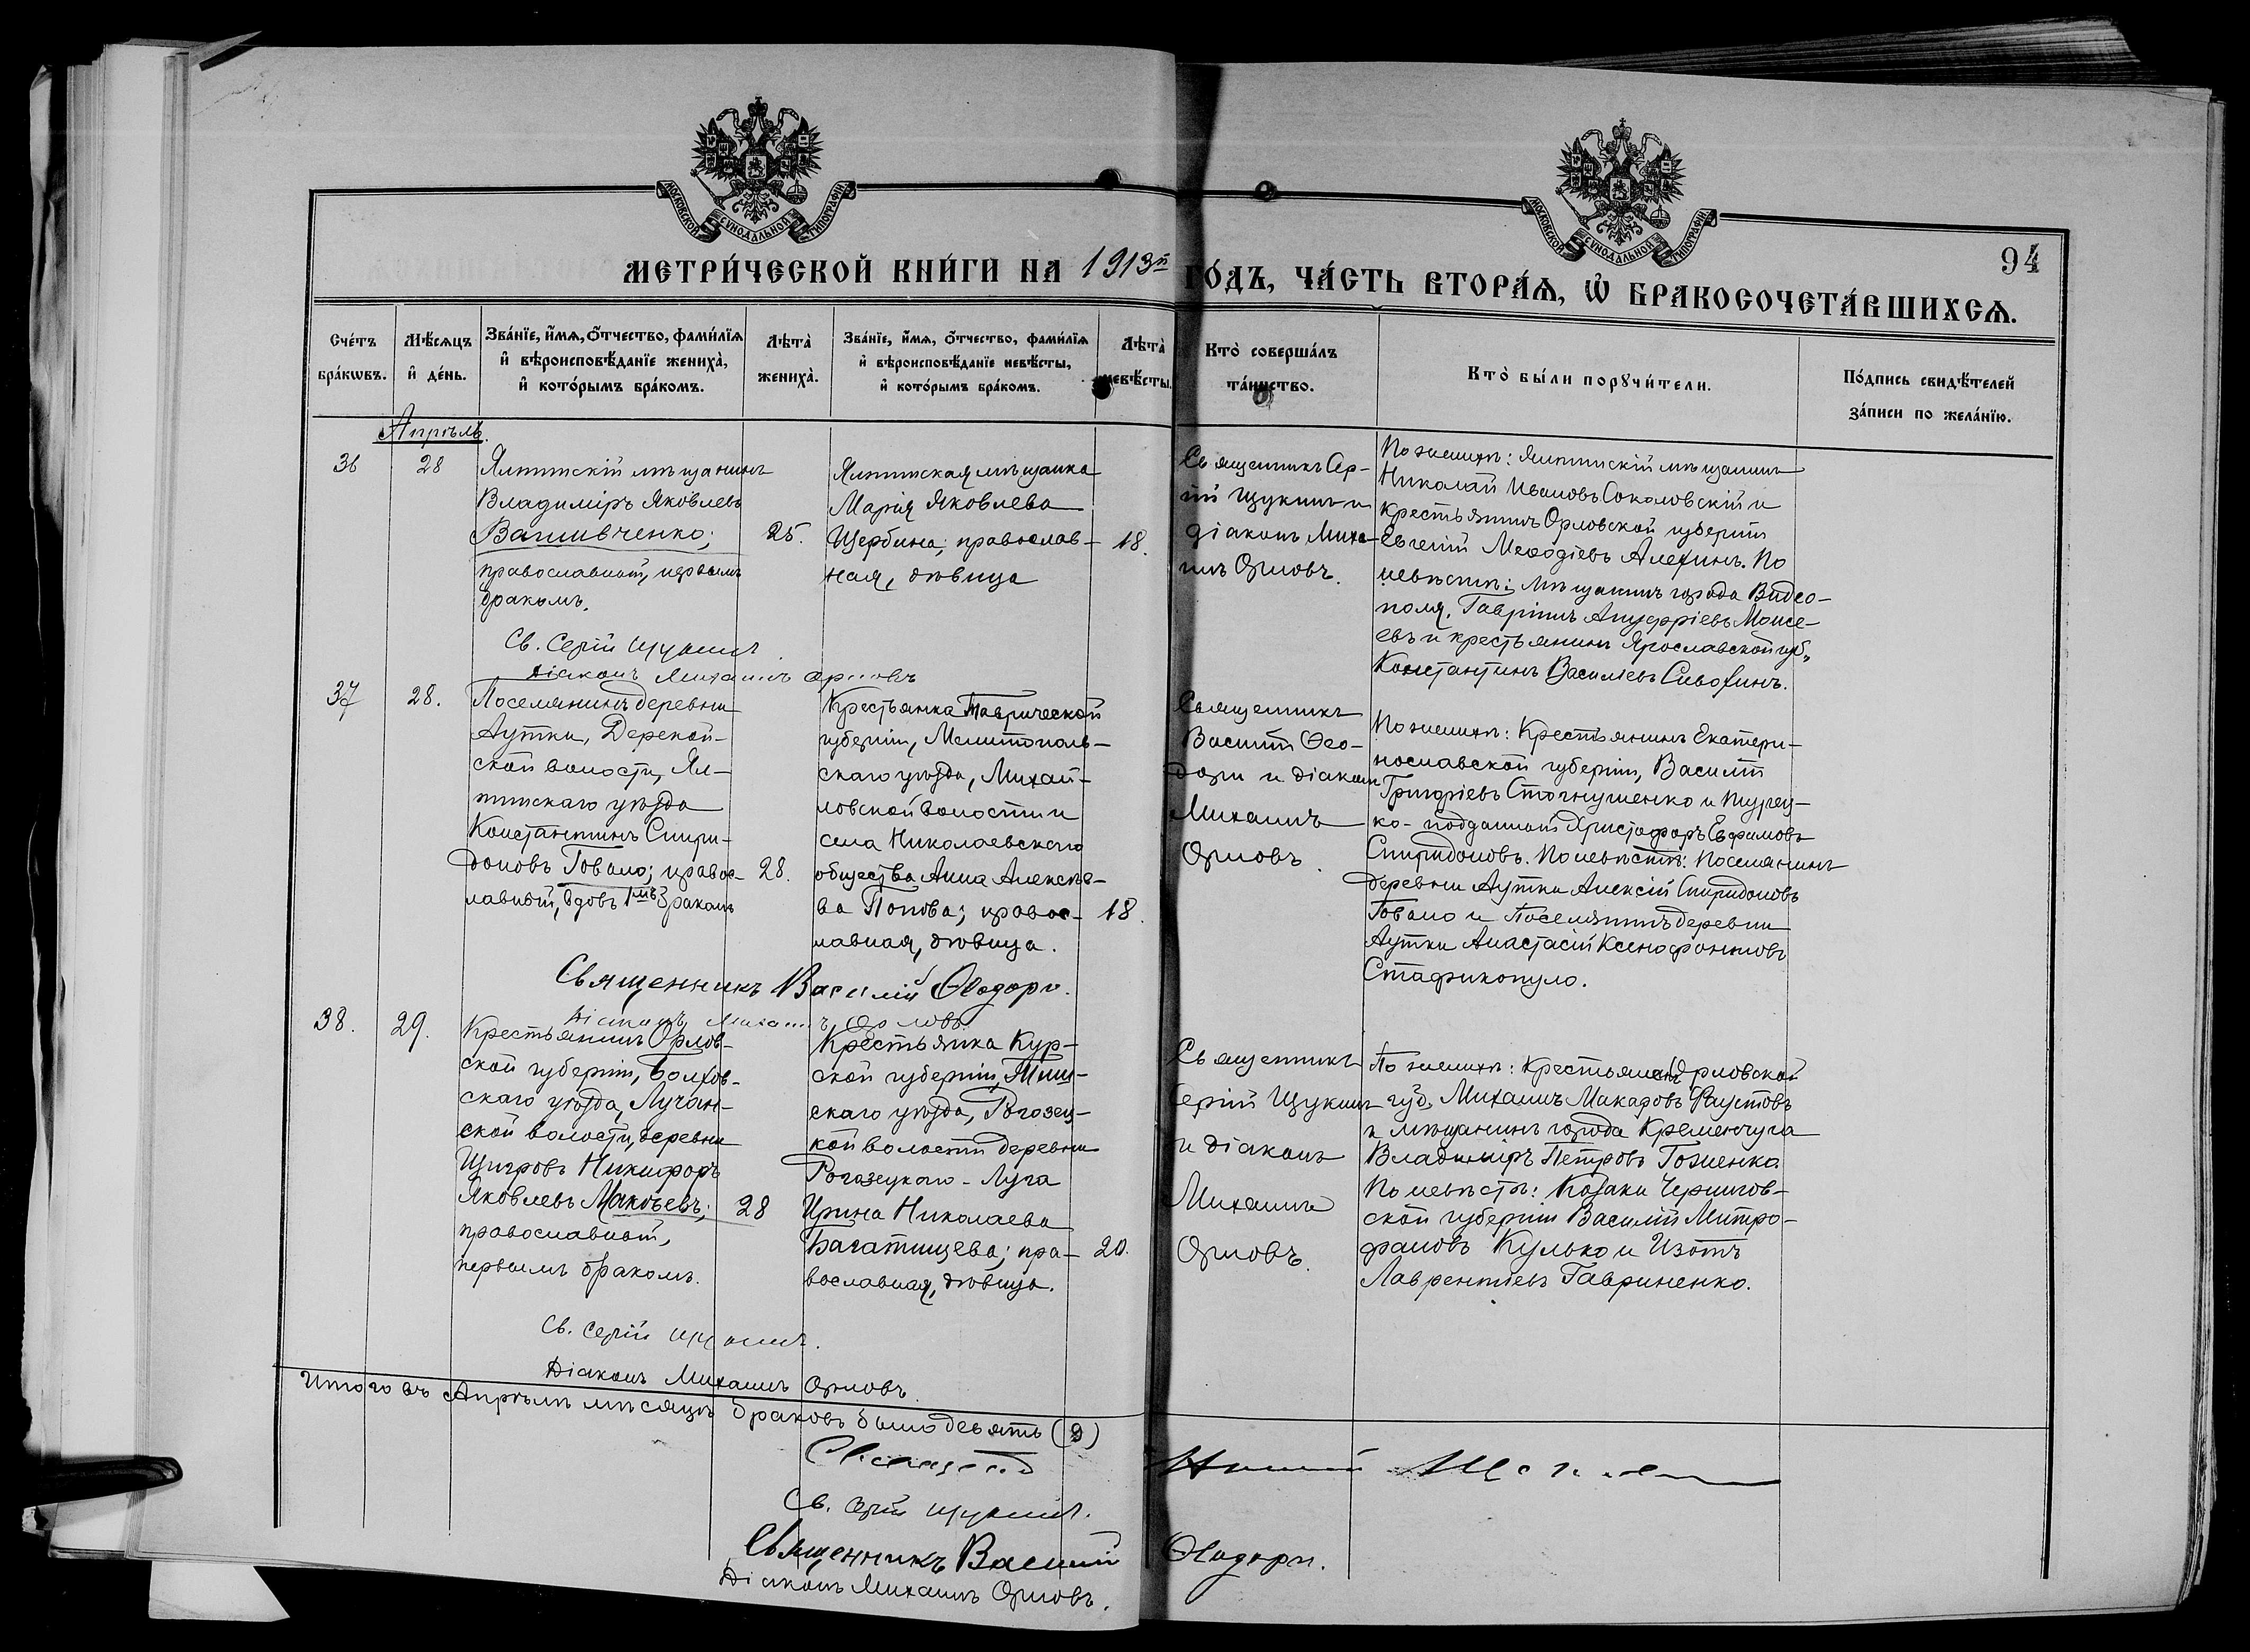 МОСКОВСКОЙ СѴНОДАЛЬНОЙ ТИПОГРАФІИ
МОСКОВСКОЙ СѴНОДАЛЬНОЙ ТИПОГРАФІИ
94
МЕТРИ́ЧЕСКОЙ КНИ́ГИ НА 1913й ГО́ДЪ, ЧА́СТЬ ВТОРА́Ѧ, Ѡ БРАКОСОЧЕТА́ВШИХСѦ.
Сче́тъ
бра́кѡвъ.
Мѣ́сяцъ
и҆ де́нь.
Зва́нїе, и҆́мѧ, ѻ҆́тчество, фами́лїѧ
и҆ вѣроисповѣ́данїе жениха̀,
и҆ кото́рымъ бра́комъ.
Лѣ́та̀
жениха̀.
Зва́нїе, и҆́мѧ, ѻ҆́тчество, фами́лїѧ
и҆ вѣроисповѣ́данїе невѣ́сты,
и҆ кото́рымъ бра́комъ.
Лѣ́та̀
невѣ́сты.
Кто̀ соверша́лъ
та́инство.
Кто̀ бы́ли порꙋчи́тели.
По́дпись свидѣ́телей
за́писи по жела́нїю.
Апрѣль.
36
28
Ялтинскій мѣщанинъ
Владиміръ Яковлевъ
Вашивченко;
православный, первымъ
бракомъ.
25.
Ялтинская мѣщанка
Марія Яковлева
Щербина; православ-
ная, дѣвица
18.
Священникъ Сер-
гій Щукинъ и
діаконъ Миха-
илъ Орловъ.
По женихѣ: Ялтинскій мѣщанинъ
Николай Ивановъ Соколовскій и
крестьянинъ Орловской губерніи
Евгеній Меѳодіевъ Алехинъ. По
невѣстѣ: мѣщанинъ города Видео-
поля, Гавріилъ Ануфріевъ Моисе-
евъ и крестьянинъ Ярославской губ.,
Константинъ Василіевъ Сивохинъ.
Св. Сергій Щукинъ
Діаконъ Михаилъ Орловъ
37
28.
Поселянинъ деревни
Аутки, Дерекой-
ской волости, Ял-
тинскаго уѣзда
Константинъ Спири-
доновъ Говало; правос-
лавный, вдовъ 1мъ бракомъ
28.
Крестьянка Таврической
губерніи, Мелитополь-
скаго уѣзда, Михай-
ловской волости и
села Николаевскаго
общества Анна Алексѣе-
ва Попова; правос-
лавная, дѣвица.
18.
Священникъ
Василій Ѳео-
дори и діаконъ
Михаилъ
Орловъ.
По женихѣ: Крестьянинъ Екатери-
нославской губерніи, Василій
Григоріевъ Стогнушенко и турец-
ко-подданный Христофоръ Ефимовъ
Спиридоновъ. По невѣстѣ: Поселянинъ
деревни Аутки Алексій Спиридоновъ
Говало и Поселянинъ деревни
Аутки Анастасій Ксенофонтовъ
Стафикопуло.
Священникъ Василій Ѳеодори.
Діаконъ Михаилъ Орловъ.
38.
29.
Крестьянинъ Орлов-
ской губерніи, Болхов-
скаго уѣзда, Лучан-
ской волости, деревни
Щигровъ Никифоръ
Яковлевъ Макѣевъ;
православный,
первымъ бракомъ.
28
Крестьянка Кур-
ской губерніи, Тим-
скаго уѣзда, Рогозец-
кой волости деревни
Рогозецкаго-Луга
Ирина Николаева
Багатищева; пра-
вославная, дѣвица.
20.
Священникъ
Сергій Щукинъ
и діаконъ
Михаилъ
Орловъ.
По женихѣ: Крестьянинъ Орловской
губ. Михаилъ Макаровъ Фаустовъ
и мѣщанинъ города Кременчуга
Владиміръ Петровъ Гоженко.
По невѣстѣ: Козаки Чернигов-
ской губерніи Василій Митро-
фановъ Кулько и Изотъ
Лаврентіевъ Гавриненко.
Св. Сергій Щукинъ.
Діаконъ Михаилъ Орловъ.
Итого въ Апрѣлѣ мѣсяцѣ браковъ было девять (9)
Св. Сергій Щукинъ.
Священникъ Василій Ѳеодори.
Діаконъ Михаилъ Орловъ.